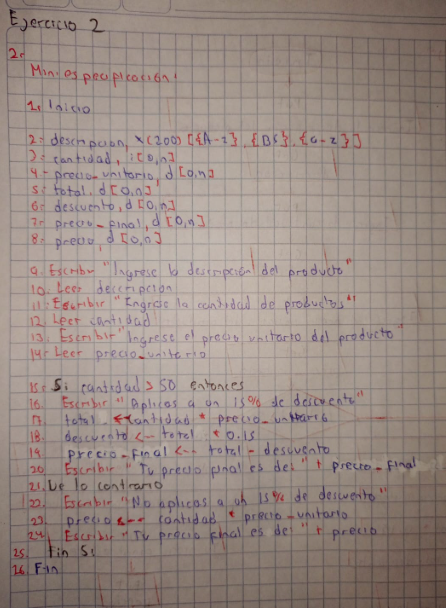 Ejercicio 2
2.
Miniespecificación:
1. Inicio
2.- descripcion, x(200) [{A-z}, {BS}, {a-z}]
3.- cantidad, i[0,n]
4.- precio_unitario, d[0,n]
5.- total, d[0,n]
6.- descuento, d[0,n]
7.- precio_final, d[0,n]
8.- precio, d[0,n]
9. Escribir "Ingrese la descripción del producto"
10. Leer descripcion
11. Escribir "Engrese la cantidad de productos"
12. Leer cantidad
13. Escribir "Ingrese el precio unitario del producto"
14. Leer precio_unitario
15. Si cantidad > 50 entonces
16. Escribir "Aplicas a un 15% de descuento"
17. total <-- cantidad * precio_unitario
18. descuento <-- total * 0.15
19. precio_final <-- total - descuento
20. Escribir "Tu precio final es de: " + precio_final
21. De lo contrario
22. Escribir "No aplicas a un 15% de descuento"
23. precio <-- cantidad * precio_unitario
24. Escribir "Tu precio final es de: " + precio
25. Fin Si
26. Fin